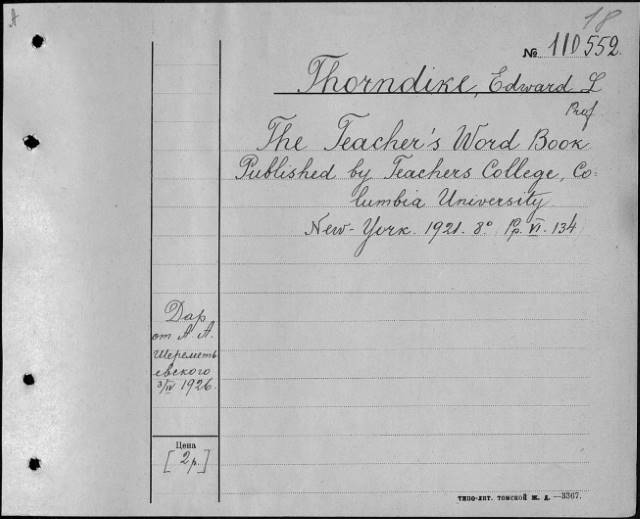 A
18
№ 110552
Thorndike, Edward L
Prof
The Teacher's Word Book
Published by Teachers College, Co=
lumbia University
New-York. 1921. 8° Pp. VI. 134
Дар
от А. А.
Шереметь
евского
3/IV 1926.
Цена
[2 р.]
ТИПО-ЛИТ. ТОМСКОЙ Ж. Д. —3367.